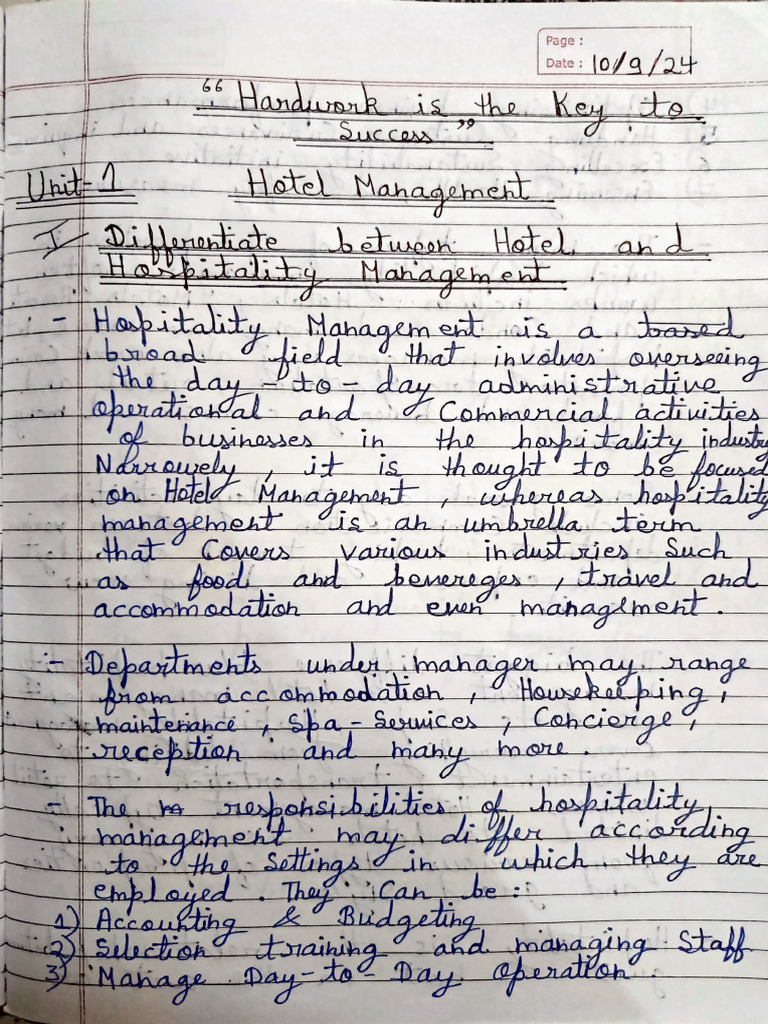 Page :
Date : 10/9/24
" Hardwork is the Key to
Success "
Unit-1 Hotel Management
I Differentiate between Hotel and
Hospitality Management
- Hospitality Management is a based
broad field that involves overseeing
the day-to-day administrative
operational and Commercial activities
of businesses in the hospitality industry
Narrowely, it is thought to be focused
on Hotel Management, whereas hospitality
management is an umbrella term
that Covers various industries Such
as food and bevereges, travel and
accommodation and even management.
- Departments under manager may range
from accommodation, Housekeeping,
maintenance, Spa-Services, Concierge,
reception and many more.
- The responsibilities of hospitality
management may differ according
to the Settings in which they are
employed. They Can be:
1) Accounting & Budgeting
2) Selection training and managing Staff
3) Manage Day-to-Day operation.